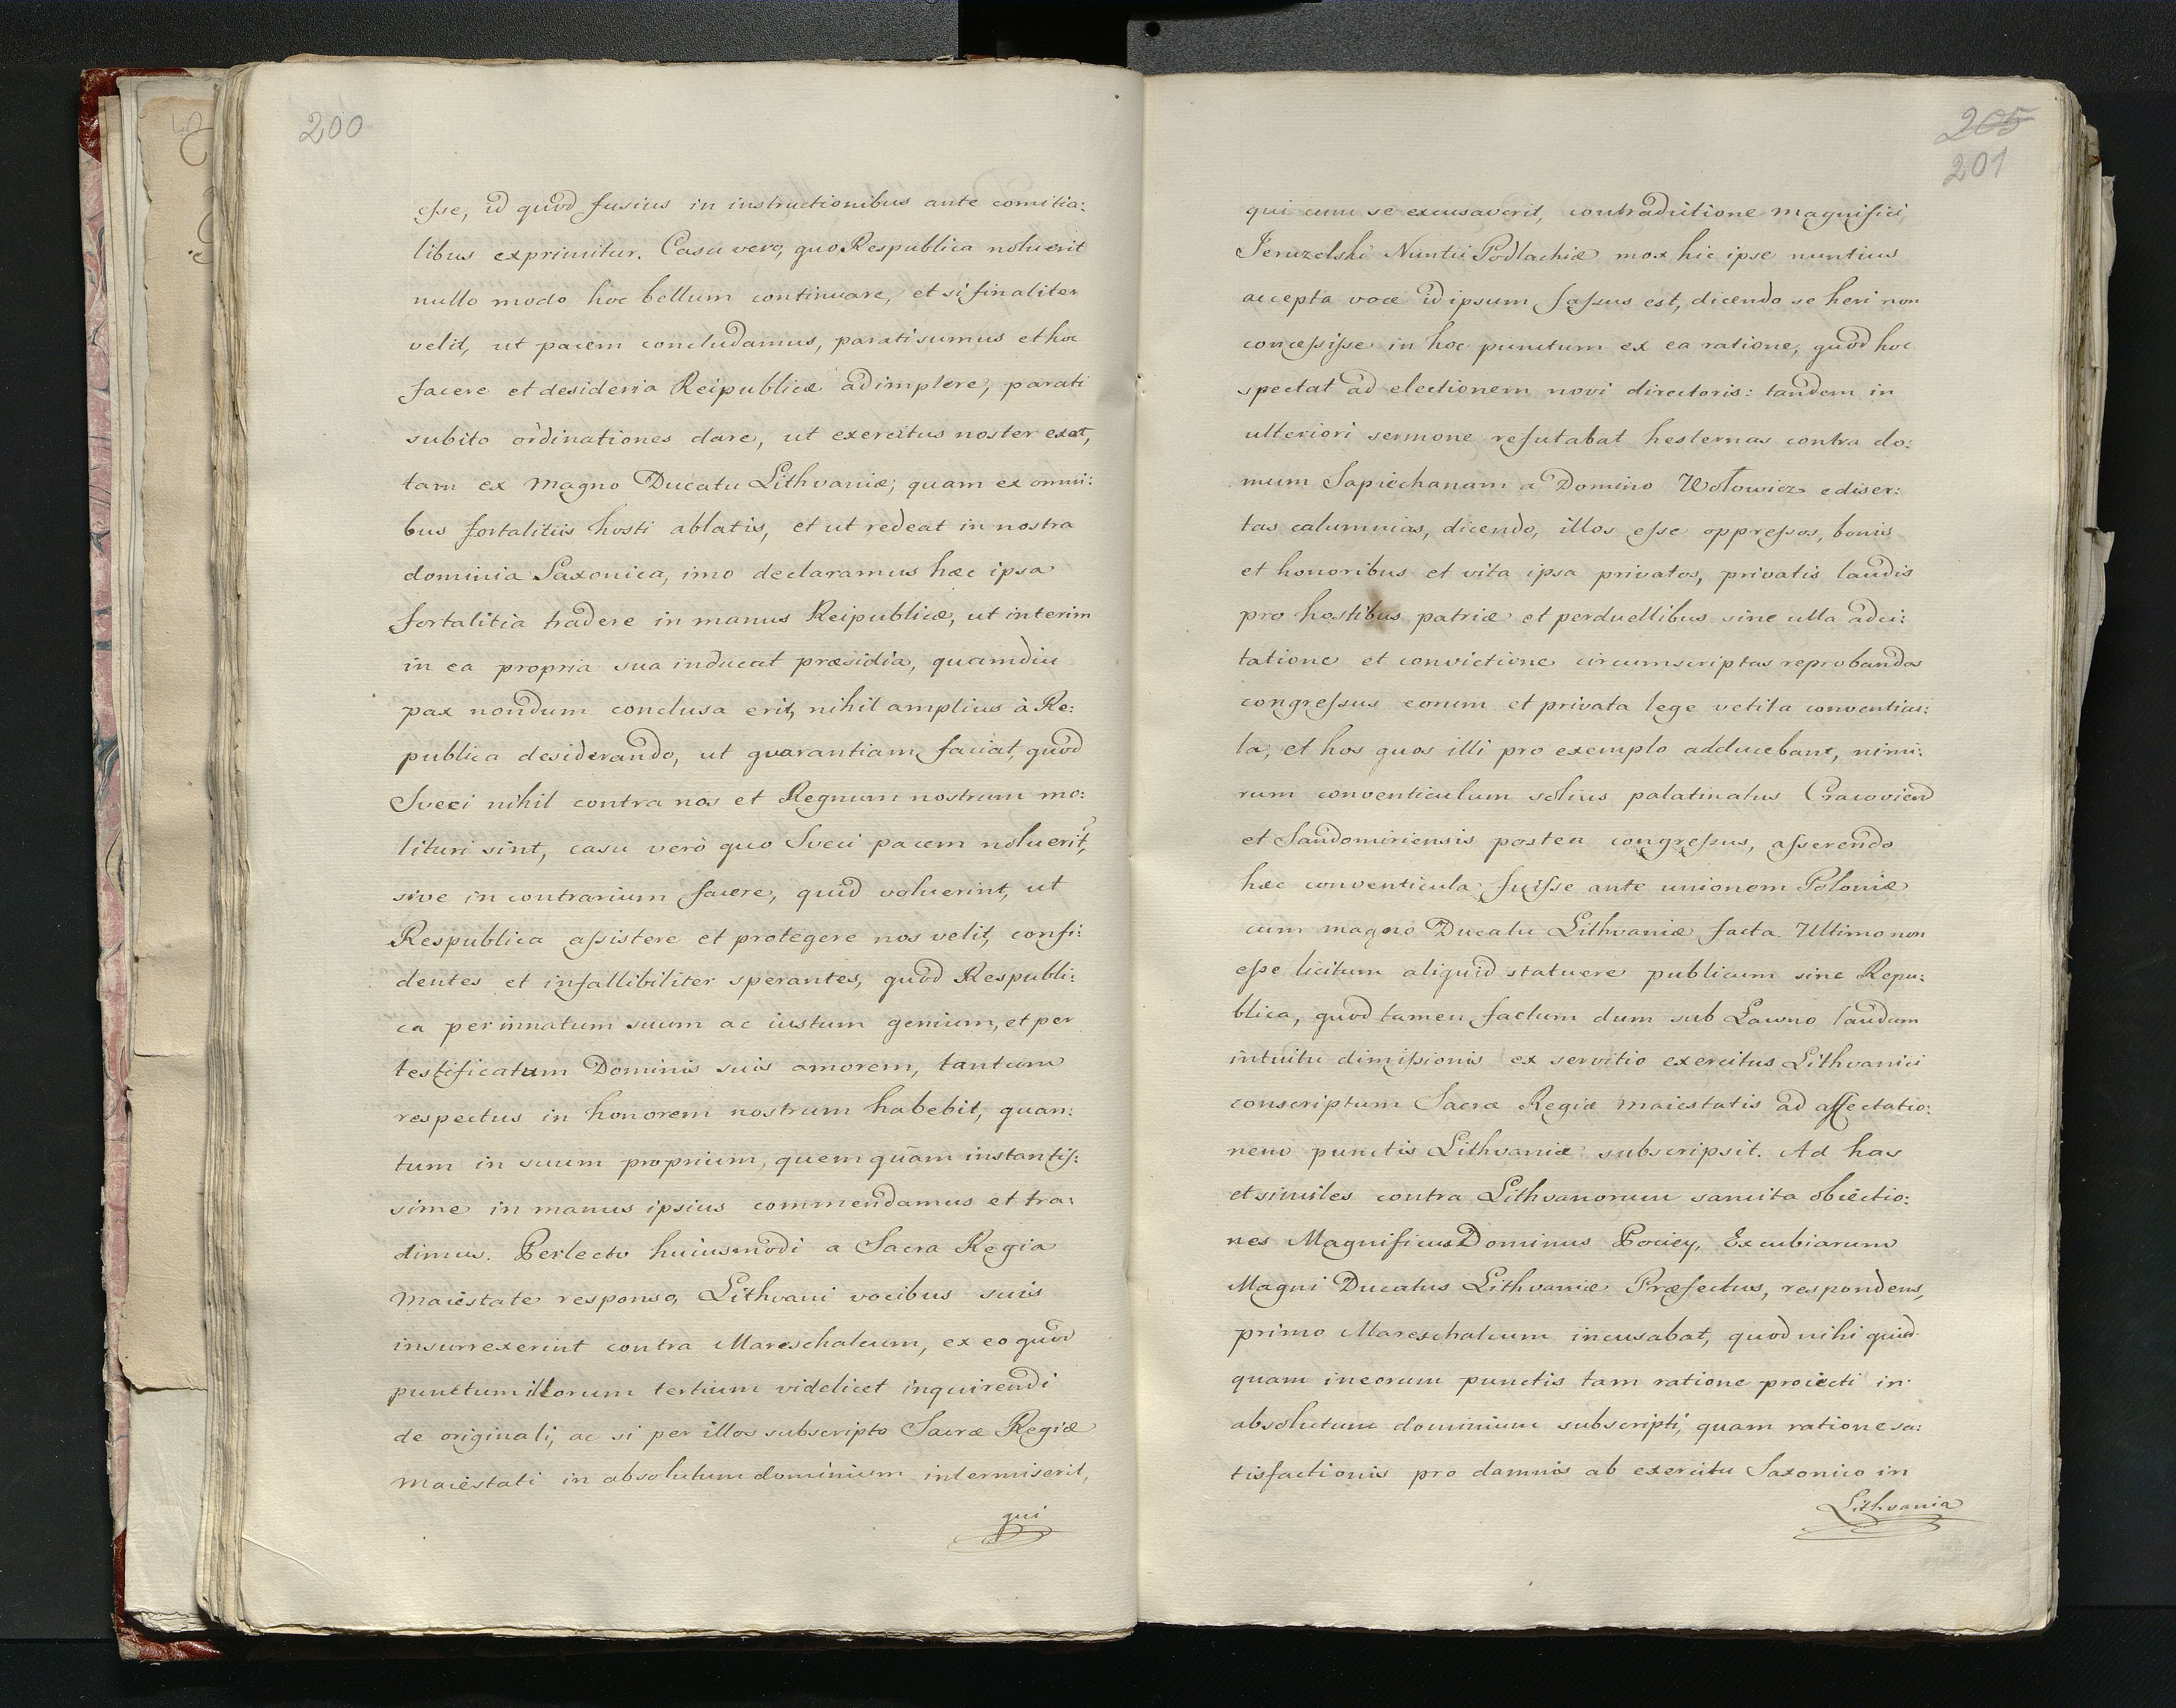 200
esse, id quod fusius in instructionibus ante comitia:
libus exprimitur. Casu vero, quo Respublica noluerit
nullo modo hoc bellum continuare, et si finaliter
velit, ut pacem concludamus, parati sumus et hoc
facere et desideria Reipublicæ adimplere, parati
subito ordinationes dare, ut exercitus noster exeat,
tam ex Magno Ducatu Lithvaniæ, quam ex omni:
bus fortalitiis hosti ablatis, et ut redeat in nostra
dominia Saxonica, imo declaramus hæc ipsa
fortalitia tradere in manus Reipublicæ, ut interim
in ea propria sua inducat præsidia, quamdiu
pax nondum conclusa erit, nihil amplius à Re:
publica desiderando, ut guarantiam faciat, quod
Sveci nihil contra nos et Regnum nostrum mo:
lituri sint, casu verò quo Sveci pacem noluerit,
sive in contrarium facere, quid voluerint, ut
Respublica assistere et protegere nos velit, confi:
dentes et infallibiliter sperantes, quod Respubli:
ca per innatum suum ac iustum genium, et per
testificatum Dominis suis amorem, tantum
respectus in honorem nostrum habebit, quan:
tum in suum proprium, quem quam instantis:
sime in manus ipsius commendamus et tra:
dimus. Perlecto huiusmodi a Sacra Regia
Maiestate responso, Lithvani vocibus suis
insurrexerint contra Mareschalcum, ex eo quod
punctum illorum tertium videlicet inquirendi
de originali, ac si per illos subscripto Sacræ Regiæ
Maiestati in absolutum dominium intermiserit,
qui
205
201
qui cum se excusaverit, contradictione Magnifici
Jeruzelski Nuntii Podlachiæ mox hic ipse nuntius
accepta voce id ipsum fassus est, dicendo se heri non
concessisse in hoc punctum ex ea ratione, quod hoc
spectat ad electionem novi directoris: tandem in
ulteriori sermone refutabat hesternas contra do:
mum Sapiechanam a Domino Wołowicz ediser:
tas calumnias, dicendo, illos esse oppressos, bonis
et honoribus et vita ipsa privatos, privatis laudis
pro hostibus patriæ et perduellibus sine ulla adci:
tatione et convictione circumscriptas reprobandos
congressus eorum et privata lege vetita conventicu:
la, et hos quos illi pro exemplo adducebant, nimi:
rum conventiculum solius palatinatus Cracoviens
et Sandomiriensis postea congressus, asserendo
hæc conventicula fuisse ante unionem Poloniæ
cum magno Ducatu Lithvaniæ facta. Ultimo non
esse licitum aliquid statuere publicum sine Repu:
blica, quod tamen factum dum sub Lawno laudum
intuitu dimissionis ex servitio exercitus Lithvanici
conscriptum Sacræ Regiæ Maiestatis ad affectatio:
nem punctis Lithvaniæ subscripsit. Ad has
et similes contra Lithvanorum sancita obiectio:
nes Magnificus Dominus Pociey, Excubiarum
Magni Ducatus Lithvaniæ Præfectus, respondens,
primo Mareschalcum incusabat, quod nihi quid
quam in eorum punctis tam ratione proiecti in
absolutum dominium subscripti, quam ratione sa:
tisfactionis pro damnis ab exercitu Saxonico in
Lithvania